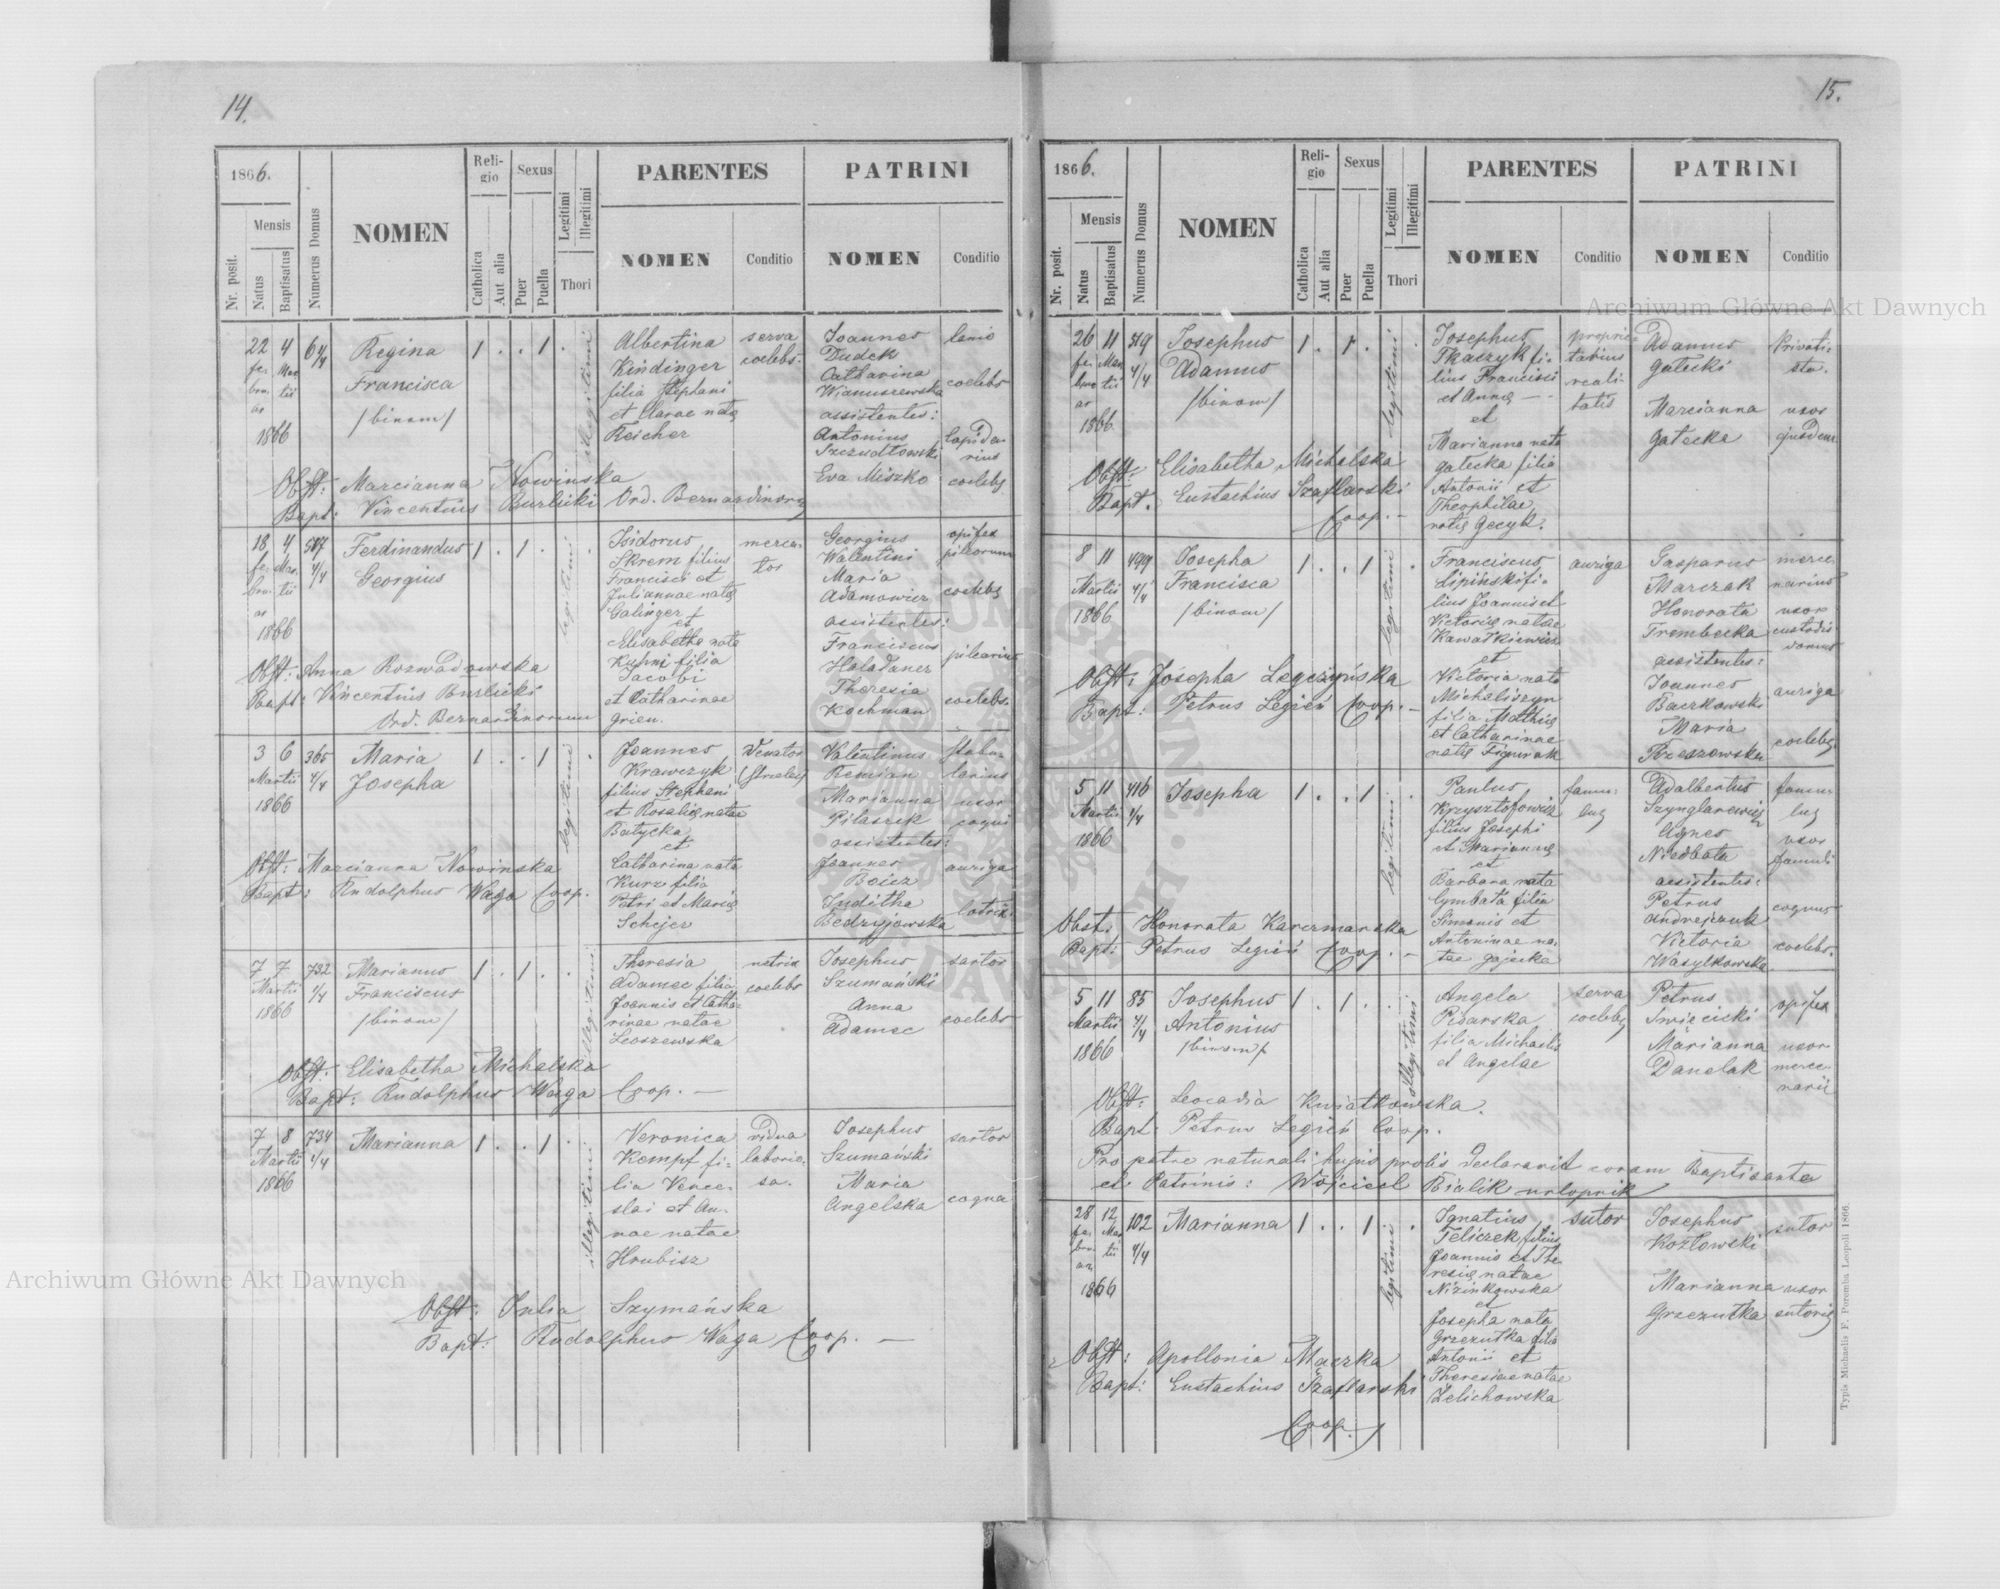 14.
1866.
Nr. posit.
Mensis
Natus
Baptisatus
Numerus Domus
NOMEN
Reli-
gio
Catholica
Aut alia
Sexus
Puer
Puella
Legitimi
Illegitimi
Thori
PARENTES
NOMEN
Conditio
PATRINI
NOMEN
Conditio
22 4 6 4/4
fe- Mar
bru- tii
ar
1866
Regina
Francisca
/binom/
1 . . 1 .
illegitimi
Albertina
Kindinger
filia Stephani
et Clarae natę
Reicher
serva
coelebs.
Joannes
Dudek
Catharina
Wianuszewska
assistentes:
Antonius
Szczudłowski
Eva Miszko
lanio
coelebs
lapida-
rius
coelebs
Obst: Marcianna Nowinska
Bapt: Vincentius Burlicki Ord. Bernardinorum
18 4 517
fe- Mar. 4/4
bru- tii
ar
1866
Ferdinandus
Georgius
1 . 1 . .
legitimi
Isidorus
Skrem filius
Francisci et
Juliannae natę
Galinger
et
Elisabetha nata
Kuhni filia
Jacobi
et Catharinae
Grien.
merca-
tor
Georgius
Walentini
Maria
Adamowicz
assistentes:
Franciscus
Theresia
Kochman
opifex
pileorum
coelebs
pilearius
coelebs.
Obst: Anna Rozwadowska
Bapt: Vincentius Burlicki
Ord. Bernardinorum
3 6 365
Martii 4/4
1866
Maria
Josepha
1 . . 1 .
legitimi
Joannes
Krawczyk
filius Stephani
et Rosalię natae
Batycka
et
Catharina nata
Kurz filia
Petri et Marię
Schejer
Venator
Valentinus
Remian
Marianna
Pilaszek
assistentes:
Joannes
Boicz
Juditha
Bedzyjowska
stabu-
larius
uxor
coqui
auriga
lotrix
Obst: Marcianna Nowinska
Bapt: Rudolphus Waga Coop.
7 7 732
Martii 4/4
1866
Marianus
Franciscus
/binom/
1 . 1 . .
illegitimi
Theresia
Adamec filia
Joannis et Catha-
rinae natae
Leoszewska
nutrix
coelebs
Josephus
Szumański
Anna
Adamec
sartor
coelebs
Obst: Elisabetha Michalska
Bapt: Rudolphus Waga Coop. —
7 8 734
Martii 4/4
1866
Marianna
1 . . 1 .
illegitimi
Veronica
Kempf fi-
lia Vence-
slai et An-
nae natae
Hrubisz
vidua
laborio-
sa.
Josephus
Szumański
Maria
Angelska
sartor
coqua
Obst: Julia Szymańska
Bapt: Rudolphus Waga Coop. —
15.
1866.
Nr. posit.
Mensis
Natus
Baptisatus
Numerus Domus
NOMEN
Reli-
gio
Catholica
Aut alia
Sexus
Puer
Puella
Legitimi
Illegitimi
Thori
PARENTES
NOMEN
Conditio
PATRINI
NOMEN
Conditio
26 11 519
fe- Mar 4/4
bru- tii
ar
1866
Josephus
Adamus
/binom/
1 . 1 . .
legitimi
Josephus
Tkaszyk fi-
lius Francisci
et Annę —
et
Marianna nata
Gałecka filia
Antonii et
Theophilae
natę Gecyk.
proprie-
tarius
reali-
tatis
Adamus
Gałecki
Marcianna
Gałecka
Privati-
sta.
uxor
ejusdem
Obst: Elisabetha Michalska
Bapt. Eustachius Szaflarski
Coop. —
8 11 499
Martii 4/4
1866
Josepha
Francisca
/binom/
1 . . 1 .
legitimi
Franciscus
Lipiński fi-
lius Joannis et
Victorię natae
Kawałkiewicz
et
Victoria nata
Michaliszyn
filia Mathię
et Catharinae
natę Figurak
auriga
Gasparus
Marczak
Honorata
Trembecka
assistentes:
Joannes
Baczkowski
Maria
Rzeszowska
merce-
narius
uxor
custodis
domus
auriga
coelebs
Obst: Josepha Legczyńska
Bapt: Petrus Legień Coop. —
5 11 416
Martii 4/4
1866
Josepha
1 . . 1 .
legitimi
Paulus
Krzysztofowicz
filius Josephi
et Mariannę
et
Barbara nata
Cymbała filia
Simonis et
Antoninae na-
tae Gajecka
famu-
lus
Adalbertus
Szynglarewicz
Agnes
Niedbała
assistentes:
Petrus
Andrejczuk
Victoria
Wasylkowska
famu-
lus
uxor
famuli
coquus
coelebs.
Obst: Honorata Karczmarska
Bapt: Petrus Legień Coop. —
5 11 85
Martii 4/4
1866
Josephus
Antonius
/binom/
1 . 1 . .
illegitimi
Angela
Pisarska
filia Michaelis
et Angelae
serva
coelebs
Petrus
Swięcicki
Marianna
Danelak
opifex
uxor
merce-
narii
Obst: Leocadia Kwiatkowska.
Bapt: Petrus Legień Coop.
Pro patre naturali hujus prolis declaravit coram Baptisante
et Patrinis: Wojciech Bialik urlopnik
28 12 102
fe- Mar 4/4
bru- tii
ar
1866
Marianna
1 . . 1 .
legitimi
Ignatius
Feliczek filius
Joannis et The-
resię natae
Nizinkowska
et
Josepha nata
Grzezułka filia
Antonii et
Theresiae natae
Zelichowska
sutor
Josephus
Kozłowski
Marianna
Grzezułka
sutor
uxor
sutoris
Obst: Apollonia Mączka
Bapt: Eustachius Szaflarski
Coop.
Typis Michaelis F. Poremba Leopoli 1866.
Archiwum Główne Akt Dawnych
Archiwum Główne Akt Dawnych